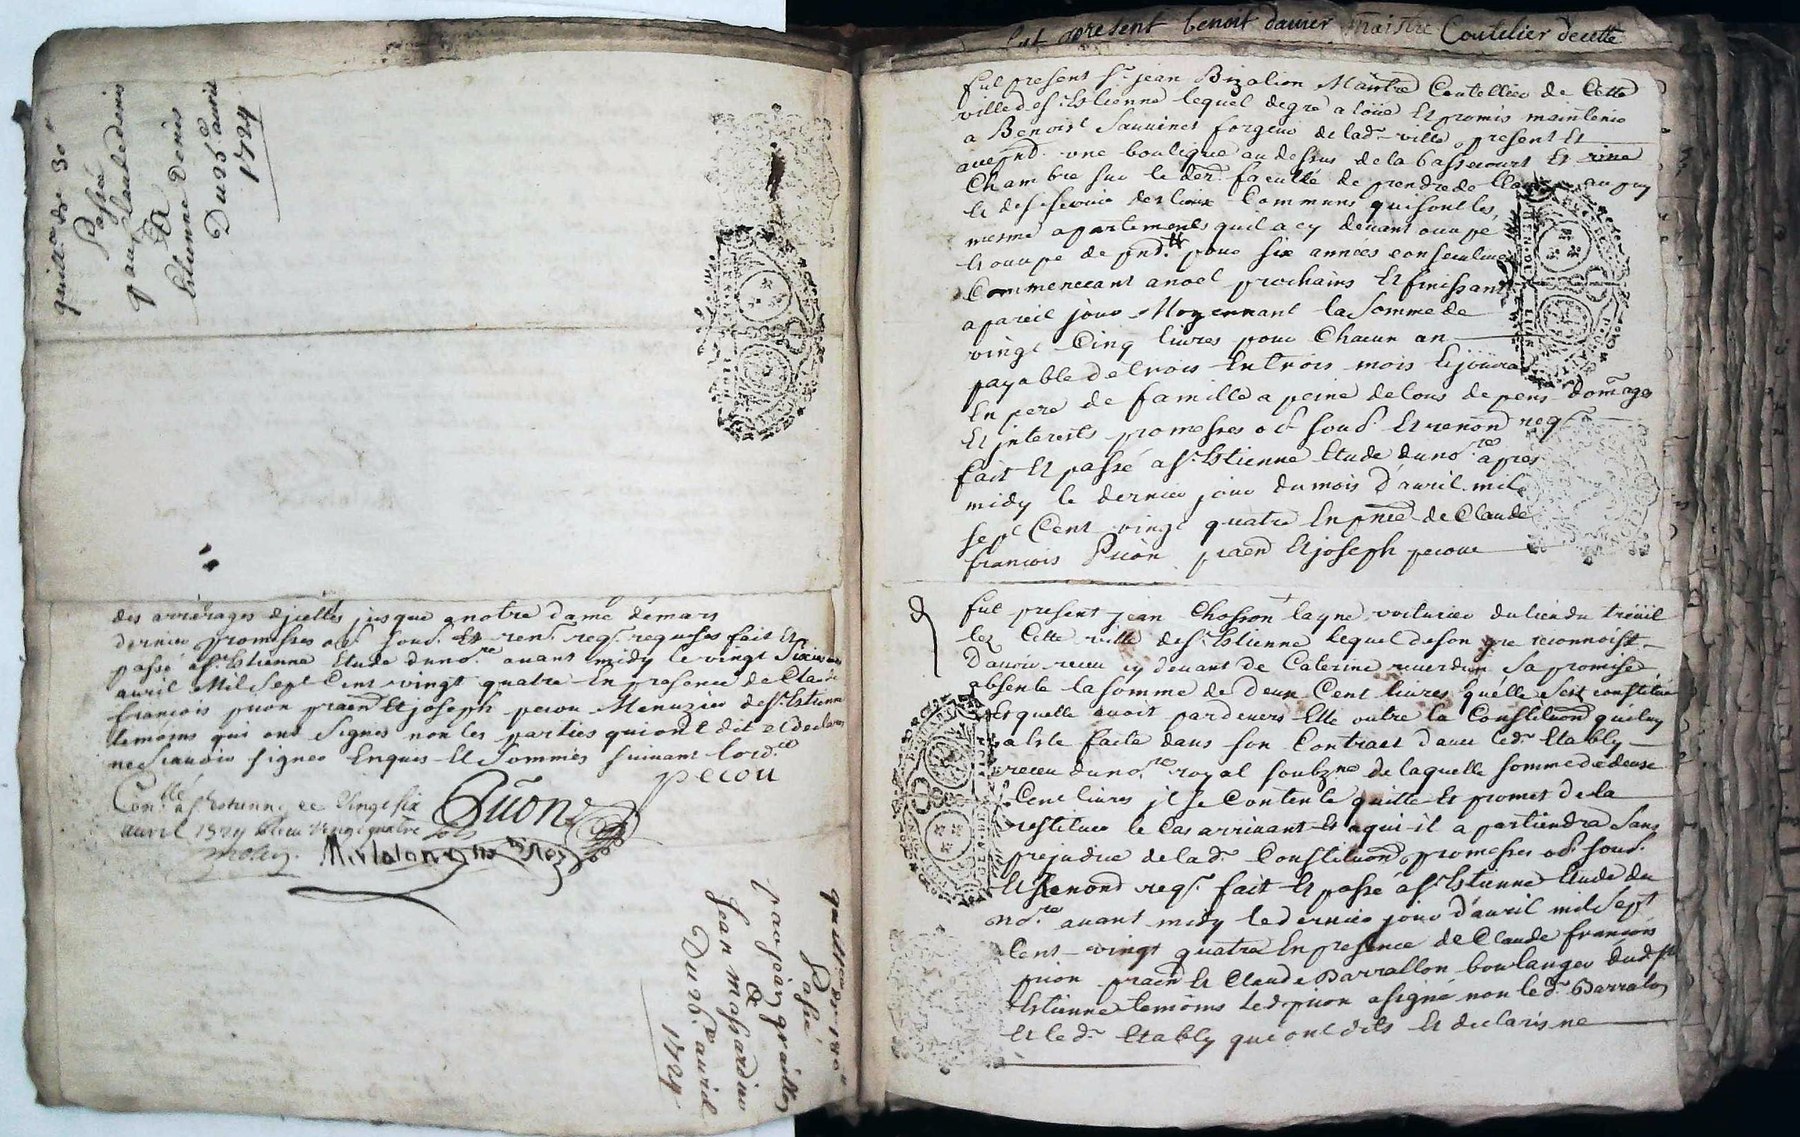 quitt.ce de 30 "
Passée
par Claude denis
A
Estienne Denis
Du 26e avril
1724
des arrérages d'jcelles jusque a notre dame de mars
dernier promesses obl. soud. Et ren.t req.s requises fait Et
passé a St. Estienne Etude du no.re avant midy le vingt sixieme
avril Mil sept Cent vingt quatre En presence de Claude
francois puon praen Et joseph pecou Menuzier de St. Estienne
temoins qui ont signés non les parties qui ont dit et declarés
ne scavoir signer Enquis Et Sommés suivant l'ord.ce
pecou
Puon
Con.llé a St Estienne ce vingt six
avril 1724 vingt quatre sols
quitt.ce de
Passée
par jean
&
Jean massardier
Du 26.e avril
1724.
fut present benoit davier maistre Coutelier de cette
fut present Sr. jean Bizalion Maitre Coutellier de Cette
ville de St. Estienne lequel de gre a loüé Et promis maintenir
a Benoist Sauvinet forgeur de lad.e ville present Et
accepnd. une boutique au dessus de la bassecourt Et une
Chambre sur le der. faculté de prendre de l'eau au puy
Et de se servir des lieux Communs qui sont les
mesme apartements qu'il a cy devant occupé
Et occupe de pnd.t pour six années consecutives
Commencant a noel prochains Et finissant
a pareil jour Moyennant la somme de
vingt Cinq livres pour Chacun an
payable de trois En trois mois Et jouira
En pere de famille a peine de tous depens domages
Et jnterests promesses obl. soud. Et renond req.s
fait Et passé a St. Estienne Etude du no.re apres
midy le dernier jour du mois d'avril mil
sept Cent vingt quatre En pnce de Claude
francois Puon praen Et joseph pecou
fut present jean Chosson layné voiturier du lieu du treüil
lez Cette ville de St. Estienne lequel de son gre reconnoist
d'avoir receu cy devant de Caterine reverdun sa promise
absente la somme de deux Cent livres qu'elle s'est constitué
Et quelle avoit pardevers Elle outre la Constituon qui luy
a este faite dans son Contract d'avec led. Etably
receu du no.re royal soubzne de laquelle somme de deux
Cent livres jl se Contente quitte Et promet de la
restituer le cas arrivant Et a qui il apartiendra sans
prejudice de lad.e Constituon promesses obl. soud.
Et Renond req.s fait Et passé a St. Estienne Etude du
no.re avant midy le dernier jour d'avril mil sept
Cent vingt quatre En presence de Claude francois
puon praen Et Claude Barrallon boulanger dud. St.
Estienne temoins led. puon a signé non led. Barralon
Et led. Etably qui ont dits Et declarés ne